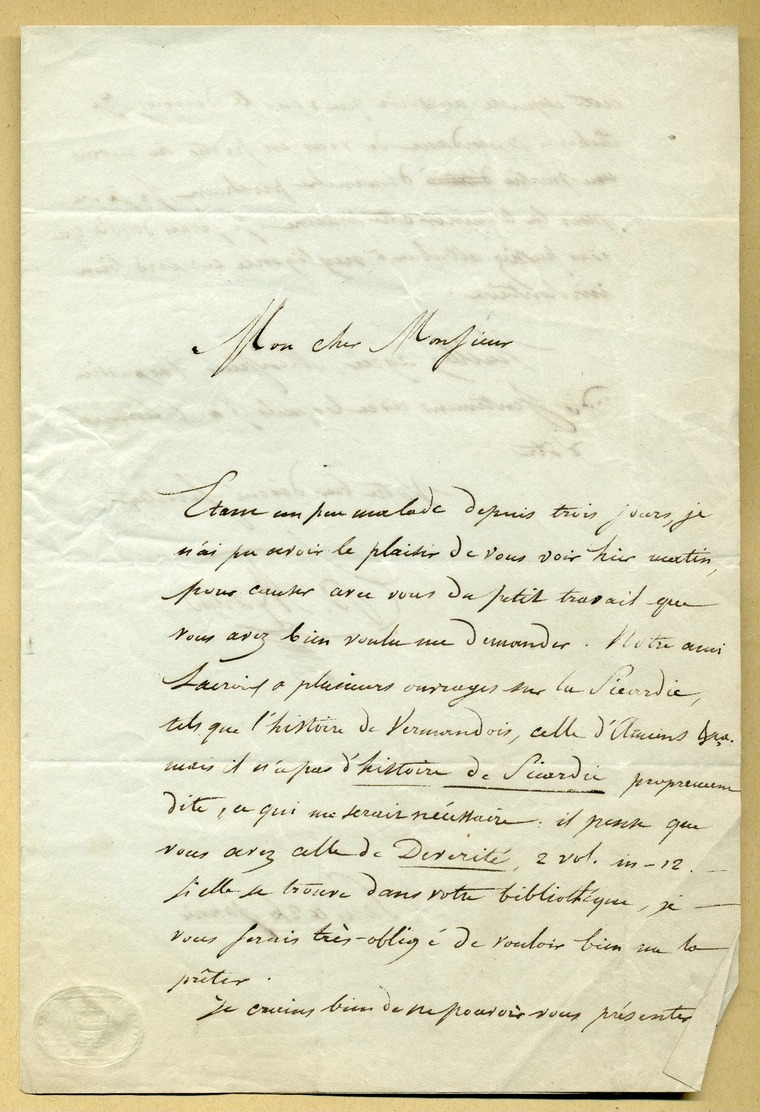 Mon cher Monsieur
Etant un peu malade depuis trois jours, je
n'ai pu avoir le plaisir de vous voir hier matin,
pour causer avec vous du petit travail que
vous avez bien voulu me demander. Notre ami
Lacroix a plusieurs ouvrages sur la Picardie,
tels que l'histoire de Vermandois, celle d'Amiens
mais il n'a pas d'histoire de Picardie proprement
dite, ce qui me serait nécessaire : il pense que
vous avez celle de Deverité, 2 vol. in-12. —
si elle se trouve dans votre bibliothéque, je —
vous serais très-obligé de vouloir bien me la
prêter.
Je crains bien de ne pouvoir vous présenter